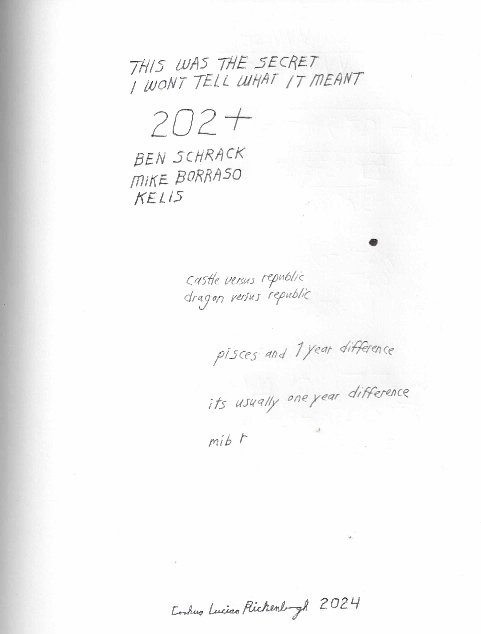 THIS WAS THE SECRET
I WONT TELL WHAT IT MEANT
202+
BEN SCHRACK
MIKE BORRASO
KELIS
castle versus republic
dragon versus republic
pisces and 1 year difference
its usually one year difference
mib r
Lucian 2024